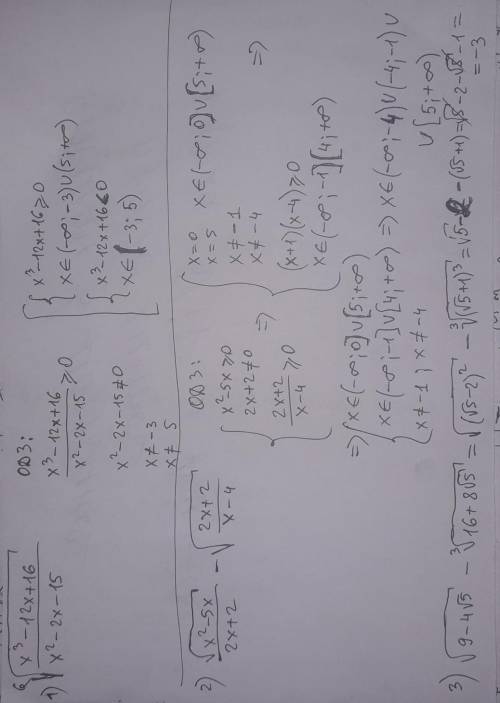 1) ⁶√((x³-12x+16)/(x²-2x-15))
ОДЗ:
(x³-12x+16)/(x²-2x-15) ≥ 0
x²-2x-15≠0
x≠-3
x≠ 5
[ { x³-12x+16≥0
x∈(-∞;-3)∪(5;+∞)
{ x³-12x+16<0
x∈(-3;5)
2) √(x²-5x)/(2x+2) - √((2x+2)/(x-4))
ОДЗ:
{ x²-5x≥0
2x+2≠0
(2x+2)/(x-4) ≥0
=>
{ x=0 x∈(-∞;0]∪[5;+∞)
x=5
x≠-1
x≠-4
(x+1)(x-4)≥0
x∈(-∞;-1][4;+∞)
=>
=> { x∈(-∞;0]∪[5;+∞)
x∈(-∞;-1]∪[4;+∞) => x∈(-∞;-4)∪(-4;-1)∪
x≠-1; x≠-4
∪[5;+∞)
3) √(9-4√5) - ³√(16+8√5) = √((√5-2)²) - ³√((√5+1)³) = √5-2-(√5+1)=√5-2-√5-1=
=-3